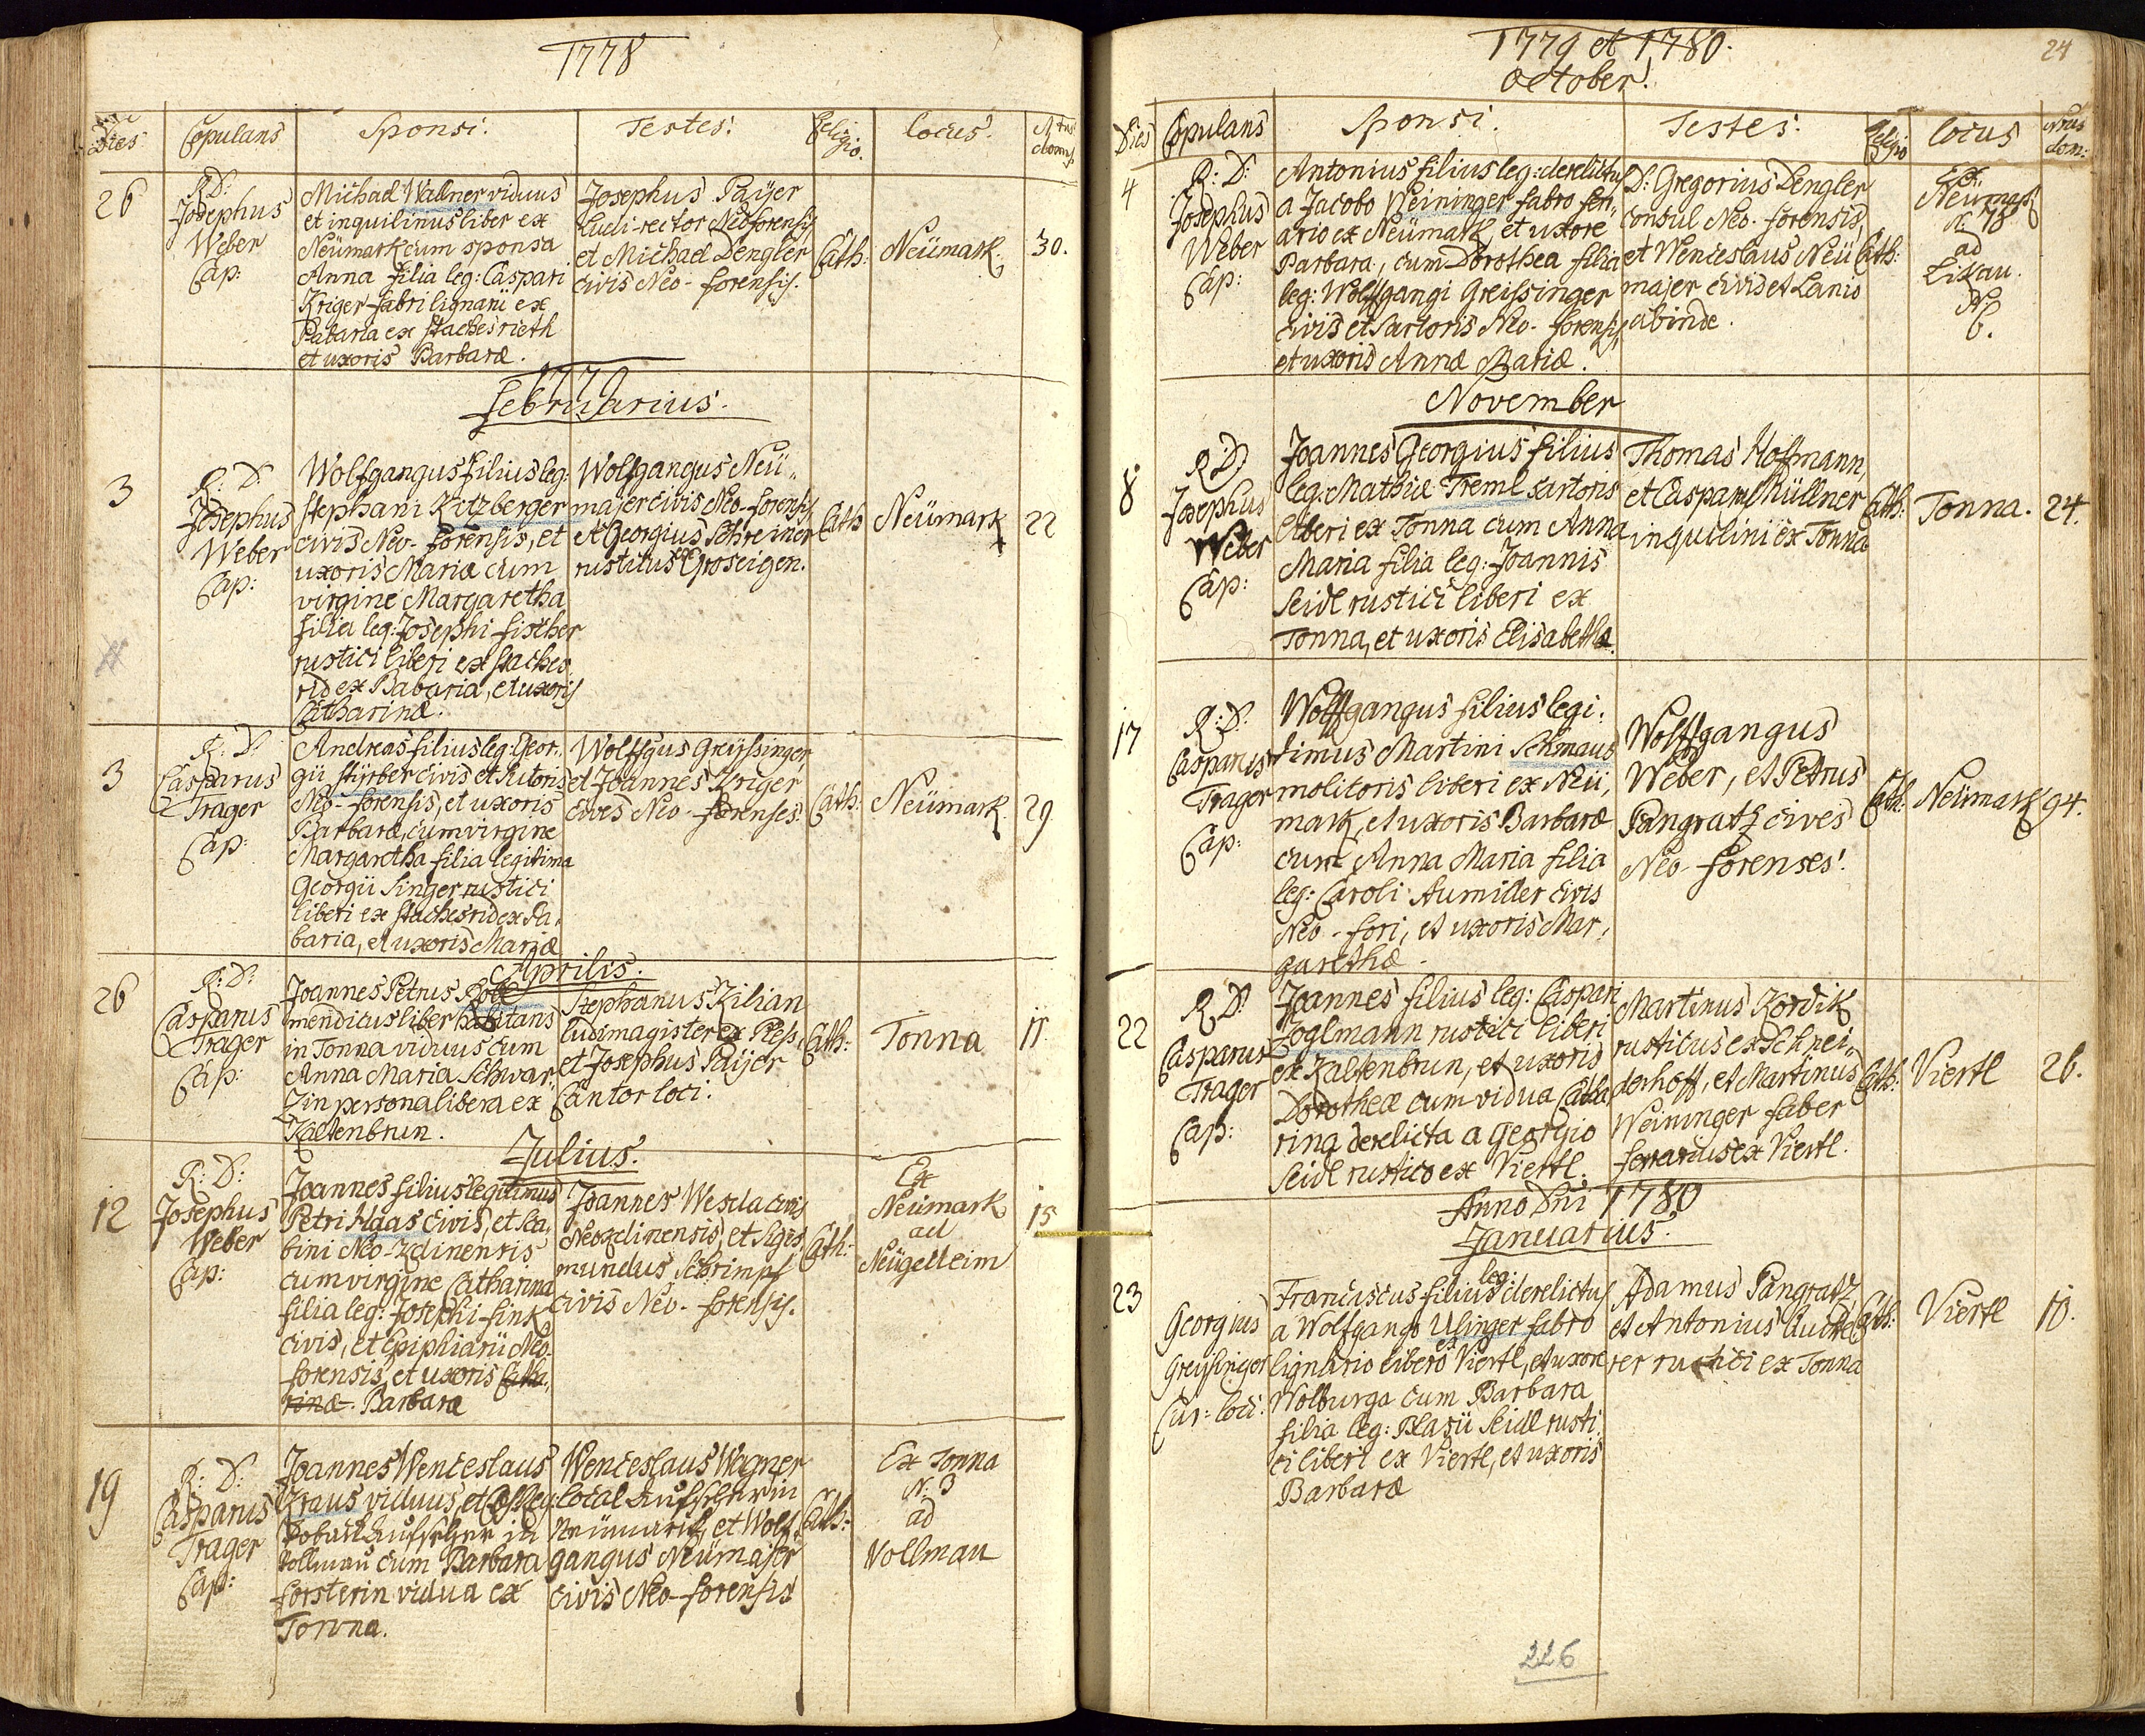 1778
Dies Copulans Sponsi. Testes. Religio. Locus. Nrus domus
26
R: D:
Josephus
Weber
Cap:
Michael Wallner viduus
et inquilinus liber ex
Neümark cum sponsa
Anna filia leg: Caspari
Kriger fabri lignarii ex
Babaria ex Stachesrieth
et uxoris Barbaræ.
Josephus Paijer
Ludi-rector Neoforensis
et Michael Dengler
civis Neo-forensis.
Cath:
Neümark.
30.
1779
Februarius.
3
R: D:
Josephus
Weber
Cap:
Wolfgangus filius leg:
Stephani Kitzberger
civis Neo-forensis, et
uxoris Mariæ cum
virgine Margaretha
filia leg: Josephi Fischer
rustici liberi ex Staches
rid ex Babaria, et uxoris
Catharinæ.
Wolfgangus Neü„
majer civis Neo-forensis
et Georgius Schreiner
rusticus ex Groseigen.
Cath
Neümark
22
3
R: D:
Casparus
Trager
Cap:
Andreas filius leg: Geor.
gii Stüber civis et sutoris
Neo-forensis, et uxoris
Barbaræ, cum virgine
Margaretha filia legitima
Georgii Singer rustici
liberi ex Stachesrid ex Ba,
baria, et uxoris Mariæ
Wolffgus Greijssinger
et Joannes Kriger
cives Neo-forenses.
Cath:
Neümark.
29.
Aprilis.
26
R: D:
Casparus
Trager
Cap:
Joannes Petrus
mendicus liber habitans
in Tonna viduus cum
Anna Maria Schwar,
zin persona libera ex
Kaltenbrun.
Stephanus Kilian
ludimagister ex Ples,
et Josephus Paijer
Cantor loci.
Cath:
Tonna
11.
Julius.
12
R: D:
Josephus
Weber
Cap:
Joannes filius legitimus
Petri Haas civis, et sca,
bini Neo-zdinensis
cum virgine Catharina
filia leg: Josephi Fink
civis, et Ephipiarii Neo-
forensis, et uxoris Catha,
rinæ. Barbaræ
Joannes Wesela civis
Neozdinensis, et Sigis
mundus Schrimpf
civis Neo-forensis.
Cath:
Ex
Neümark
ad
Neügedeim
15
19
R: D:
Casparus
Trager
Cap:
Joannes Wenceslaus
Kraus viduus, et
Aufseher in
Vollmau cum Barbara
Forsterin vidua ex
Tonna.
Wenceslaus Wagner
local Aufseher in
Neümark, et Wolf,
gangus Neümajer
civis Neo-forensis
Cath:
Ex Tonna
N: 3
ad
Vollmau
1779 et 1780.
October.
24
Dies Copulans Sponsi. Testes. Religio Locus Nrus dom:
4
R: D:
Josephus
Weber
Cap:
Antonius filius leg: derelictus
a Jacobo Weininger fabro fer„
ario ex Neümark, et uxore
Barbara, cum Dorothea filia
leg: Wolffgangi Greissinger
civis et sartoris Neo-forensis,
et uxoris Annæ Mariæ.
D: Gregorius Dengler
consul Neo-forensis,
et Wenceslaus Neü
majer civis et Lanio
abinde.
Cath:
Ex
Neümark
N: 78
ad
Lixau.
N:
6.
November
8
R: D
Josephus
Weber
Cap:
Joannes Georgius filius
leg: Mathiæ Treml sartoris
liberi ex Tonna cum Anna
Maria filia leg: Joannis
Seidl rustici liberi ex
Tonna, et uxoris Elisabethæ.
Thomas Hofmann,
et Casparus Müllner
inquilini ex Tonna
Cath:
Tonna.
24.
17
R: D:
Casparus
Trager
Cap:
Wolffgangus filius legi.
timus Martini Schmaus
molitoris liberi ex Neü,
mark, et uxoris Barbaræ
cum Anna Maria filia
leg: Caroli Aumiller civis
Neo-fori, et uxoris Mar,
garethæ.
Wolffgangus
Weber, et Petrus
Pangratz cives
Neo-forenses.
Cath:
Neümark
94.
22
R: D:
Casparus
Trager
Cap:
Joannes filius leg: Caspari
Zoglmann rustici liberi
ex Kaltenbrun, et uxoris
Dorotheæ cum vidua Catha,
rina derelicta a Georgio
Seidl rustico ex Viertl.
Martinus Kordik
rusticus ex Schnei„
derhoff, et Martinus
Weininger faber
ferrarius ex Viertl.
Cath:
Viertl
26.
Anno Dni 1780
Januarius.
23
Georgius
Greissinger
Cur: loci:
Franciscus filius leg: derelictus
a Wolfgango Ulinger fabro
lignario libero ex Viertl, et uxore
Wolburga cum Barbara
filia leg: Blasii Seidl rusti
ci liberi ex Viertl, et uxoris
Barbaræ
Adamus Pangratz
et Antonius
rer rustici ex Tonna
Cath:
Viertl
10.
226